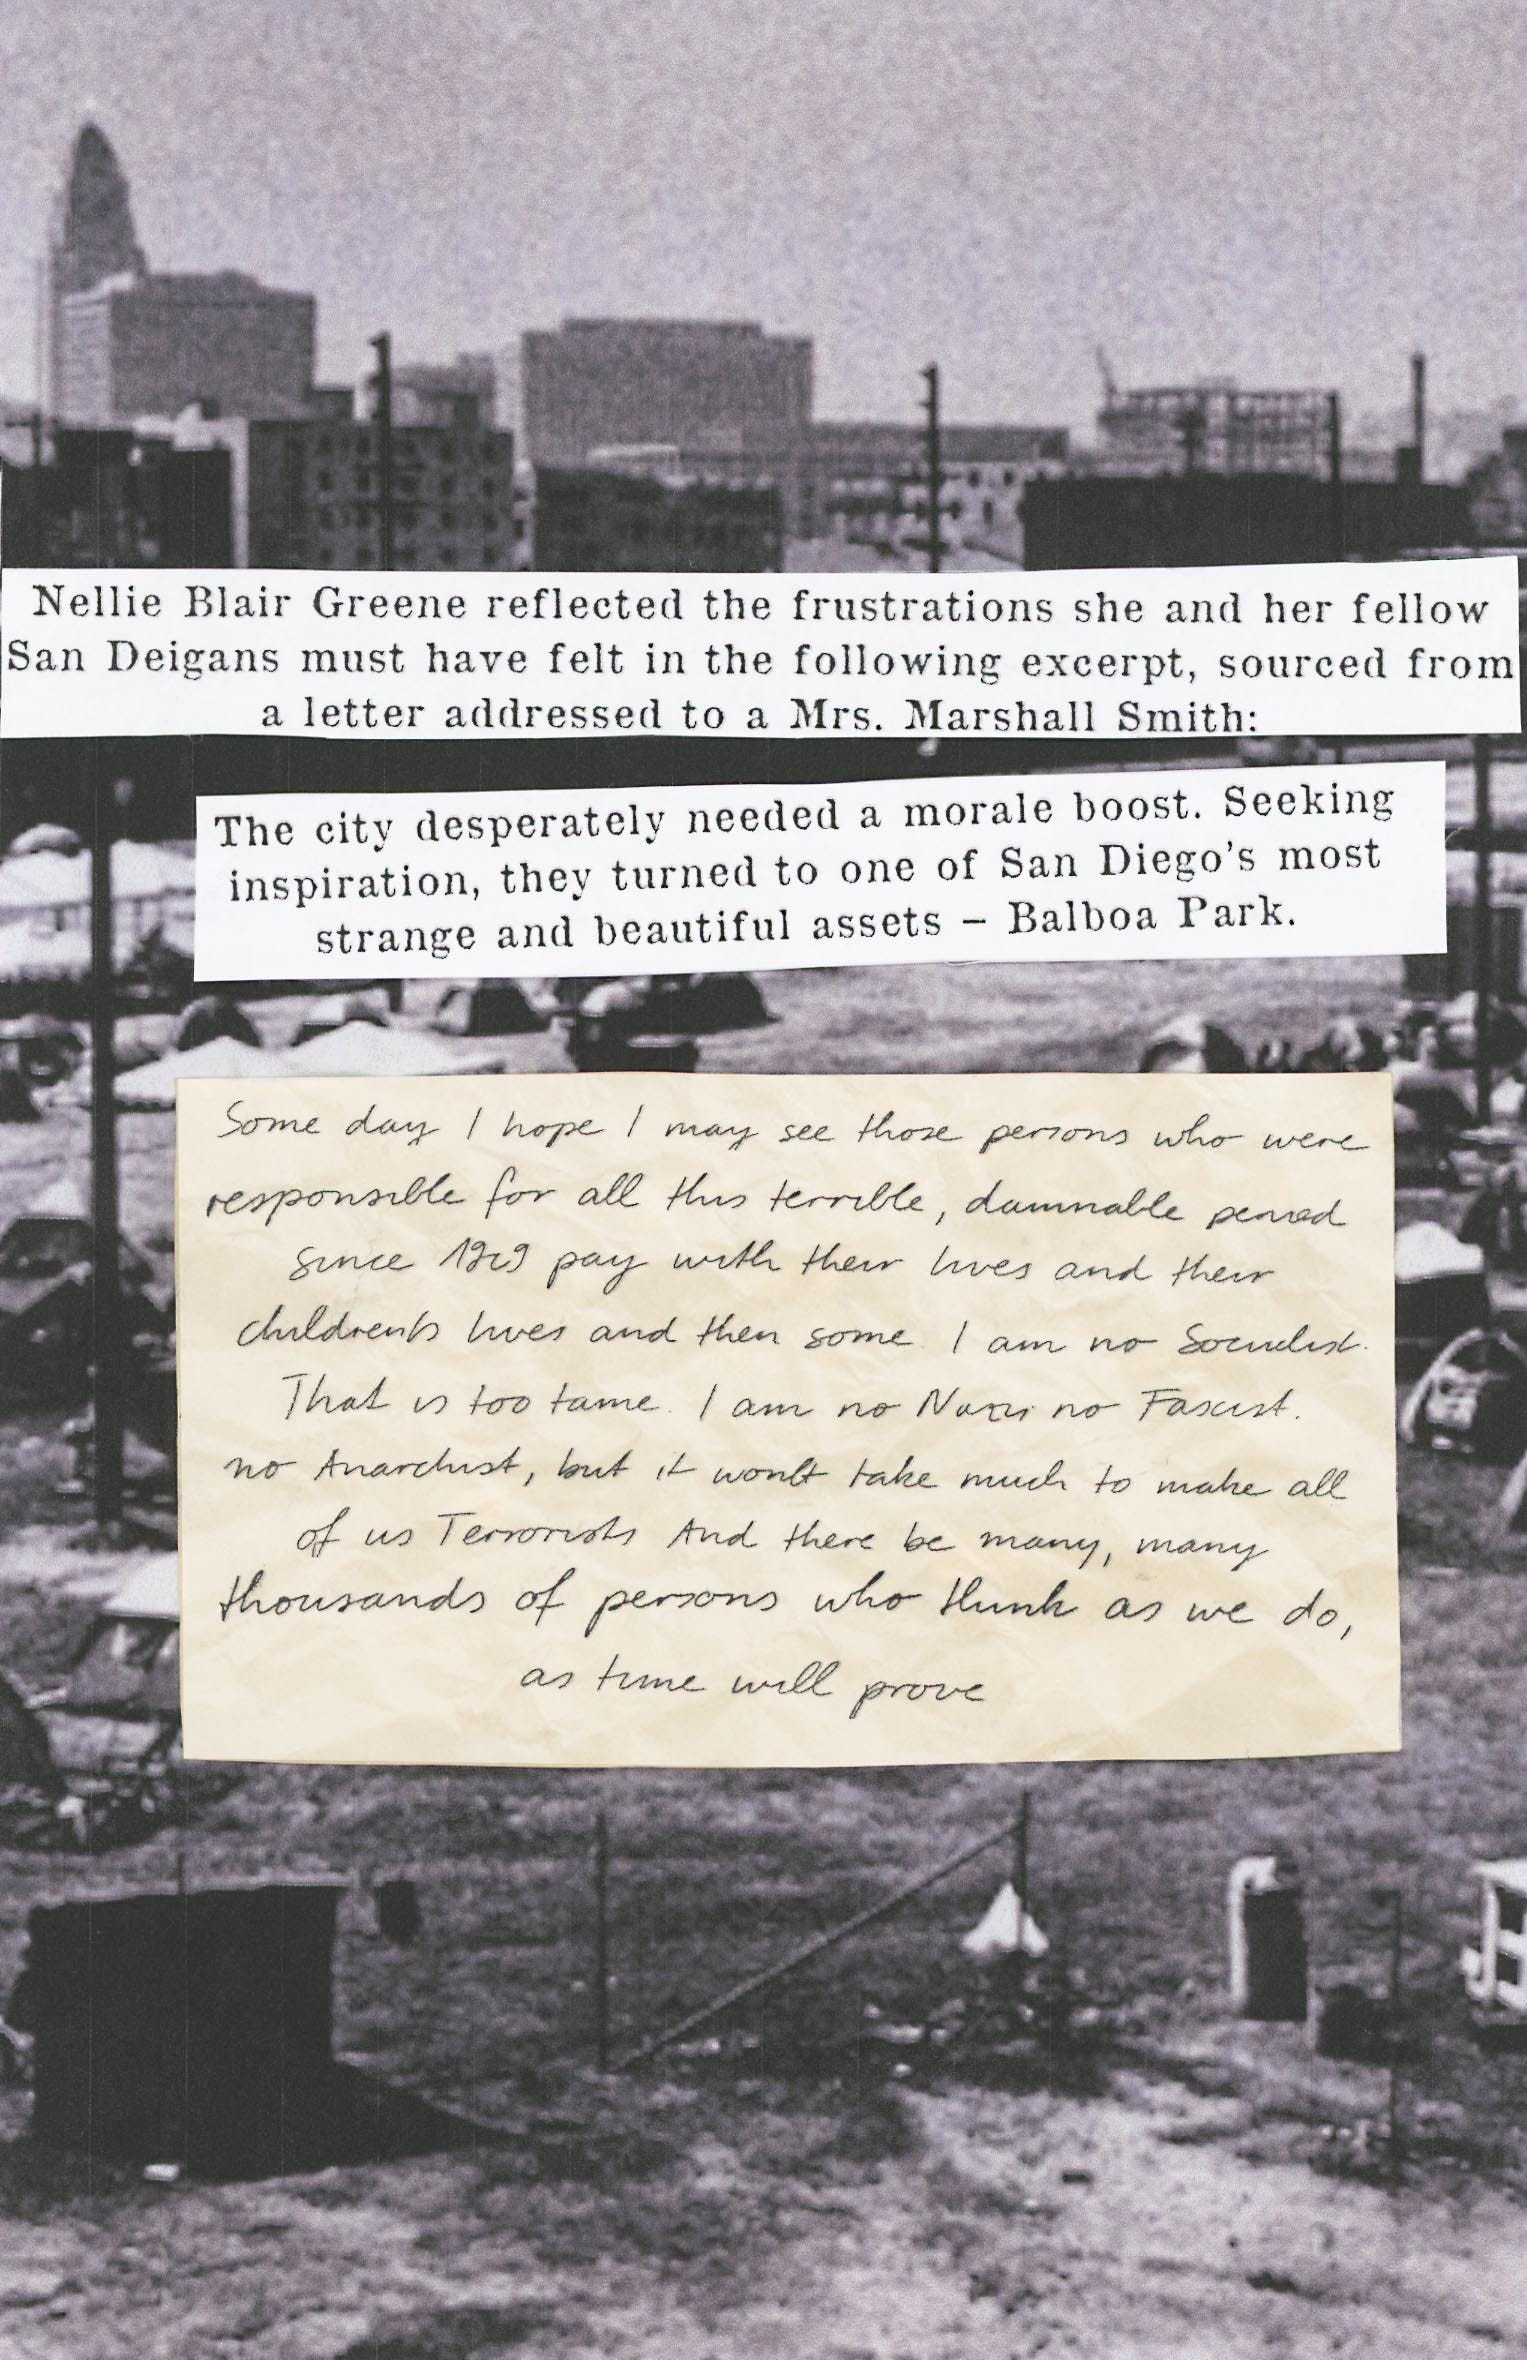 Nellie Blair Greene reflected the frustrations she and her fellow
San Deigans must have felt in the following excerpt, sourced from
a letter addressed to a Mrs. Marshall Smith:
The city desperately needed a morale boost. Seeking
inspiration, they turned to one of San Diego's most
strange and beautiful assets – Balboa Park.
Some day I hope I may see those persons who were
responsible for all this terrible, damnable period
since 1929 pay with their lives and their
children's lives and then some. I am no Socialist.
That is too tame. I am no Nazi no Fascist.
no Anarchist, but it won't take much to make all
of us Terrorists And there be many, many
thousands of persons who think as we do,
as time will prove